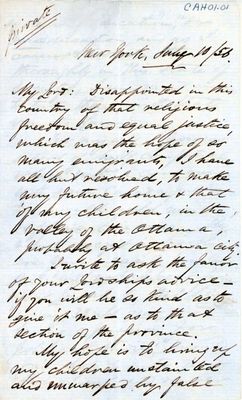 private
CAH01.01
New York, July 10/56.
My Lord: Disappointed in this
country of that religious
freedom and equal justice,
which was the hope of so
many emigrants, I have
all but resolved, to make
my future home & that
of my children, in the
valley of the Ottawa,
probably at Ottawa City.
I write to ask the favor
of your Lordship's advice —
if you will be so kind as to
give it me — as to that
section of the province.
My hope is to bring up
my children untainted
and unwarped by false